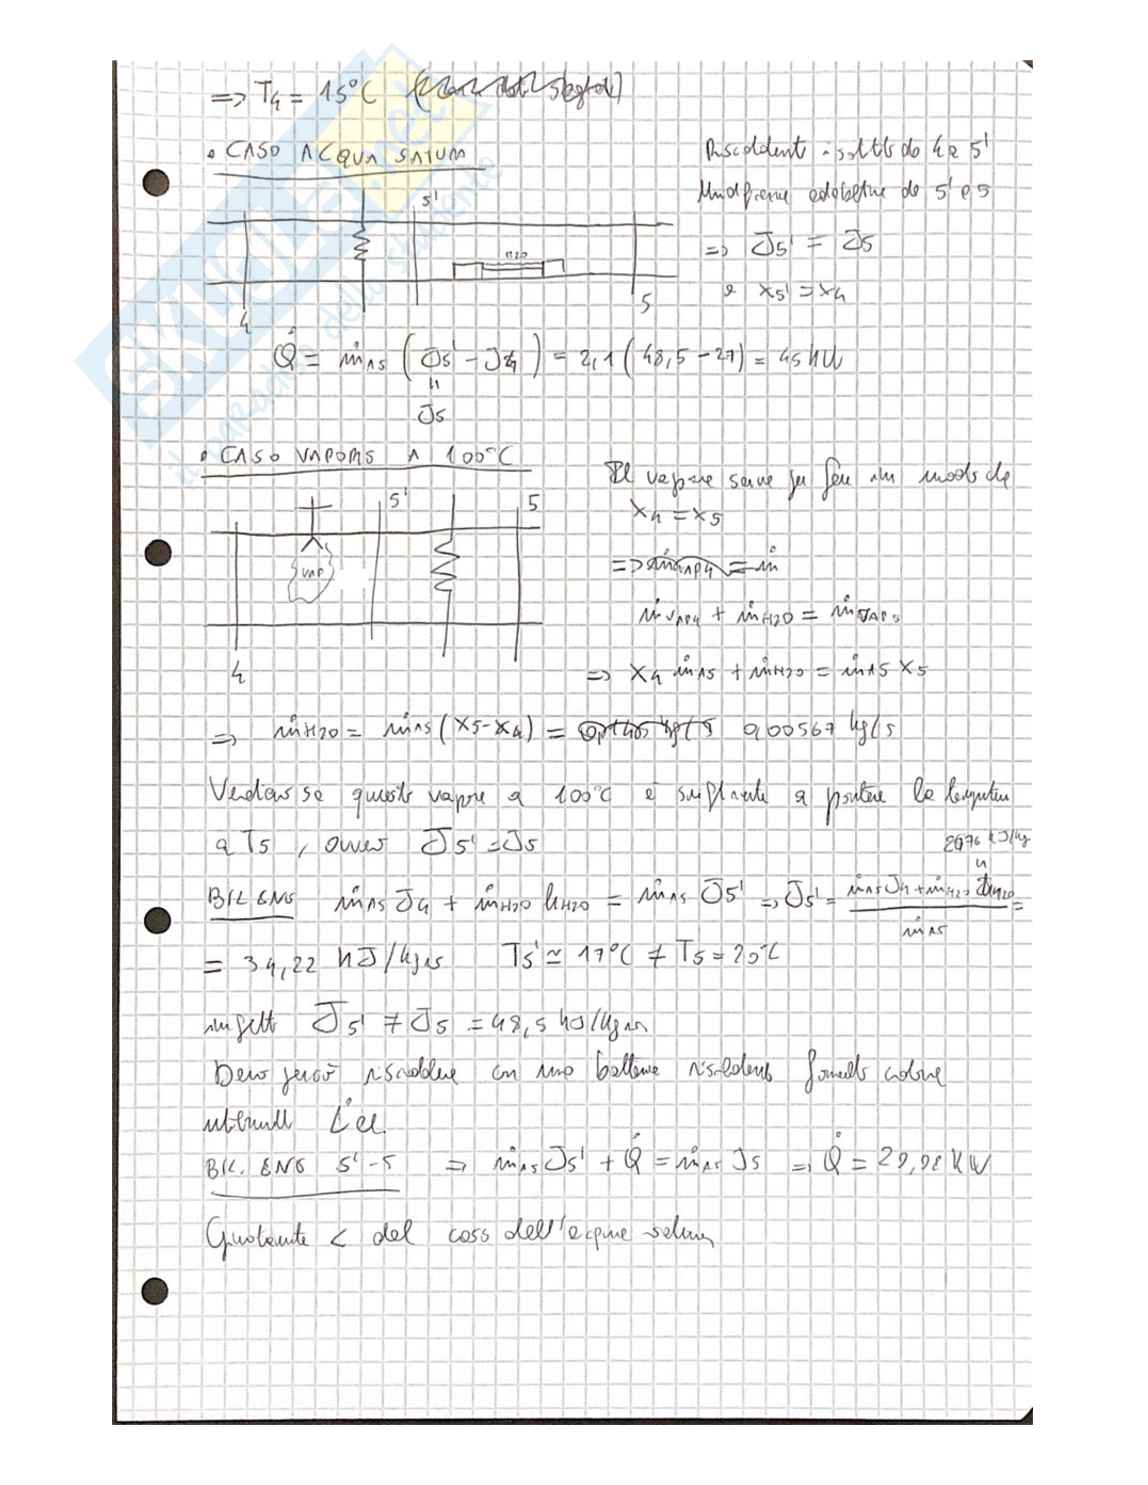 => T4 = 15°C
• CASO ACQUA SATURA
Riscaldamento isotitolo da 4 a 5'
Umidificazione adiabatica da 5' a 5
=> J5' = J5
e x5' = x4
5'
H2O
4
5
Q̇ = ṁAS (J5' - J4) = 2,1 (48,5 - 27) = 45 kW
"
J5
• CASO VAPORE A 100°C
Il vapore serve per fare in modo che
x4 = x5
5'
5
VAP
4
=> ṁVAP4 = ṁ
ṁVAP4 + ṁH2O = ṁVAP5
=> x4 ṁAS + ṁH2O = ṁAS x5
=> ṁH2O = ṁAS (x5 - x4) = 0,00567 kg/s
Vediamo se questo vapore a 100°C è sufficiente a portare la
a T5, ovvero J5' = J5
2676 kJ/kg
"
BIL ENG ṁAS J4 + ṁH2O hH2O = ṁAS J5' => J5' = ṁAS J4 + ṁH2O hH2O =
ṁAS
= 34,22 kJ/kgAS T5' ≃ 17°C ≠ T5 = 20°C
infatti J5' ≠ J5 = 48,5 kJ/kgAS
Devo perciò riscaldare con una batteria riscaldante fornendo calore
BIL. ENG 5'-5 => ṁAS J5' + Q̇ = ṁAS J5 => Q̇ = 29,98 kW
< del caso dell'acqua satura